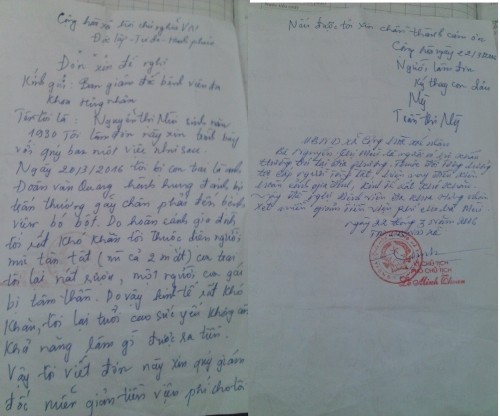 Cộng hòa xã hội chủ nghĩa VN
Độc lập - Tự do - Hạnh phúc
Đơn xin đề nghị
Kính gửi: Ban giám đốc bệnh viện đa
khoa Hồng nhân
Tên tôi là: Nguyễn thị Nhìn sinh năm
1930 Tôi làm đơn này xin trình bày
với quý ban một việc như sau.
Ngày 20/3/2016 tôi bị con trai là anh
Đoàn văn Quang hành hung đánh bị
trấn thương gãy chân phải đến bệnh
viện bó bột. Do hoàn cảnh gia đình
tôi rất khó khăn tôi thuộc diện người
mù tàn tật (mù cả 2 mắt) con trai
tôi lại nát rượu, một người con gái
bị tâm thần. Do vậy kinh tế rất khó
khăn, tôi lại tuổi cao sức yếu không còn
khả năng làm gì được ra tiền.
Vậy tôi viết đơn này xin quý giám
đốc miễn giảm tiền viện phí cho tôi
Nếu được tôi xin chân thành cảm ơn
Cộng hòa ngày 22/3/2016
Người làm đơn
Ký thay con dâu
Mỹ
Trần thị Mỹ
UBND xã Cộng hòa xác nhận
Bà Nguyễn Thị Nhìn là người có hộ khẩu
thường trú tại địa phương. Thuộc đối tượng hưởng
trợ cấp người
kinh tế rất khó khăn.
đề nghị Bệnh viện đa khoa Hồng nhân
xét miễn giảm tiền viện phí cho bà Nhìn
ngày 22 tháng 3 năm 2016
CHỦ TỊCH
PHÓ CHỦ TỊCH